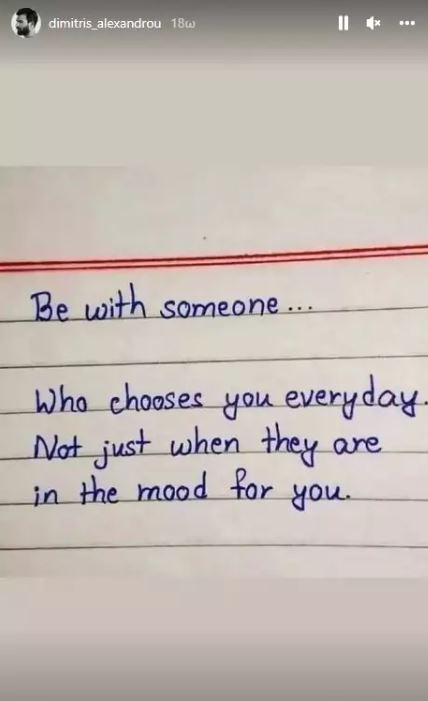 dimitris_alexandrou 18ω
Be with someone...
Who chooses you everyday.
Not just when they are
in the mood for you.